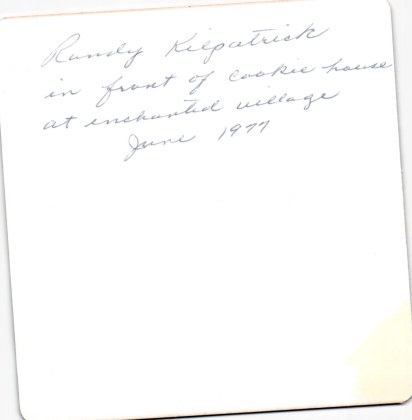 Randy Kilpatrick
in front of cookie house
at enchanted village
June 1977